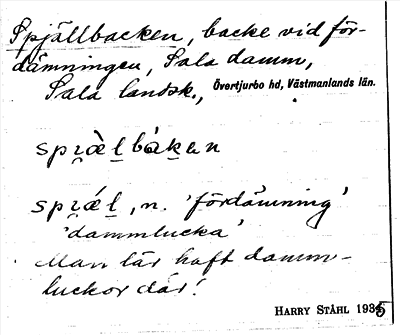 Spjällbacken, backe vid för-
dämningen, Sala damm,
Sala landsk., Övertjurbo hd, Västmanlands län.
spı̯æ̀l̠bák̠en
spı̯ǽl̠, n. 'fördämning'
'dammlucka'
Man lär haft damm-
luckor där!
HARRY STÅHL 1935